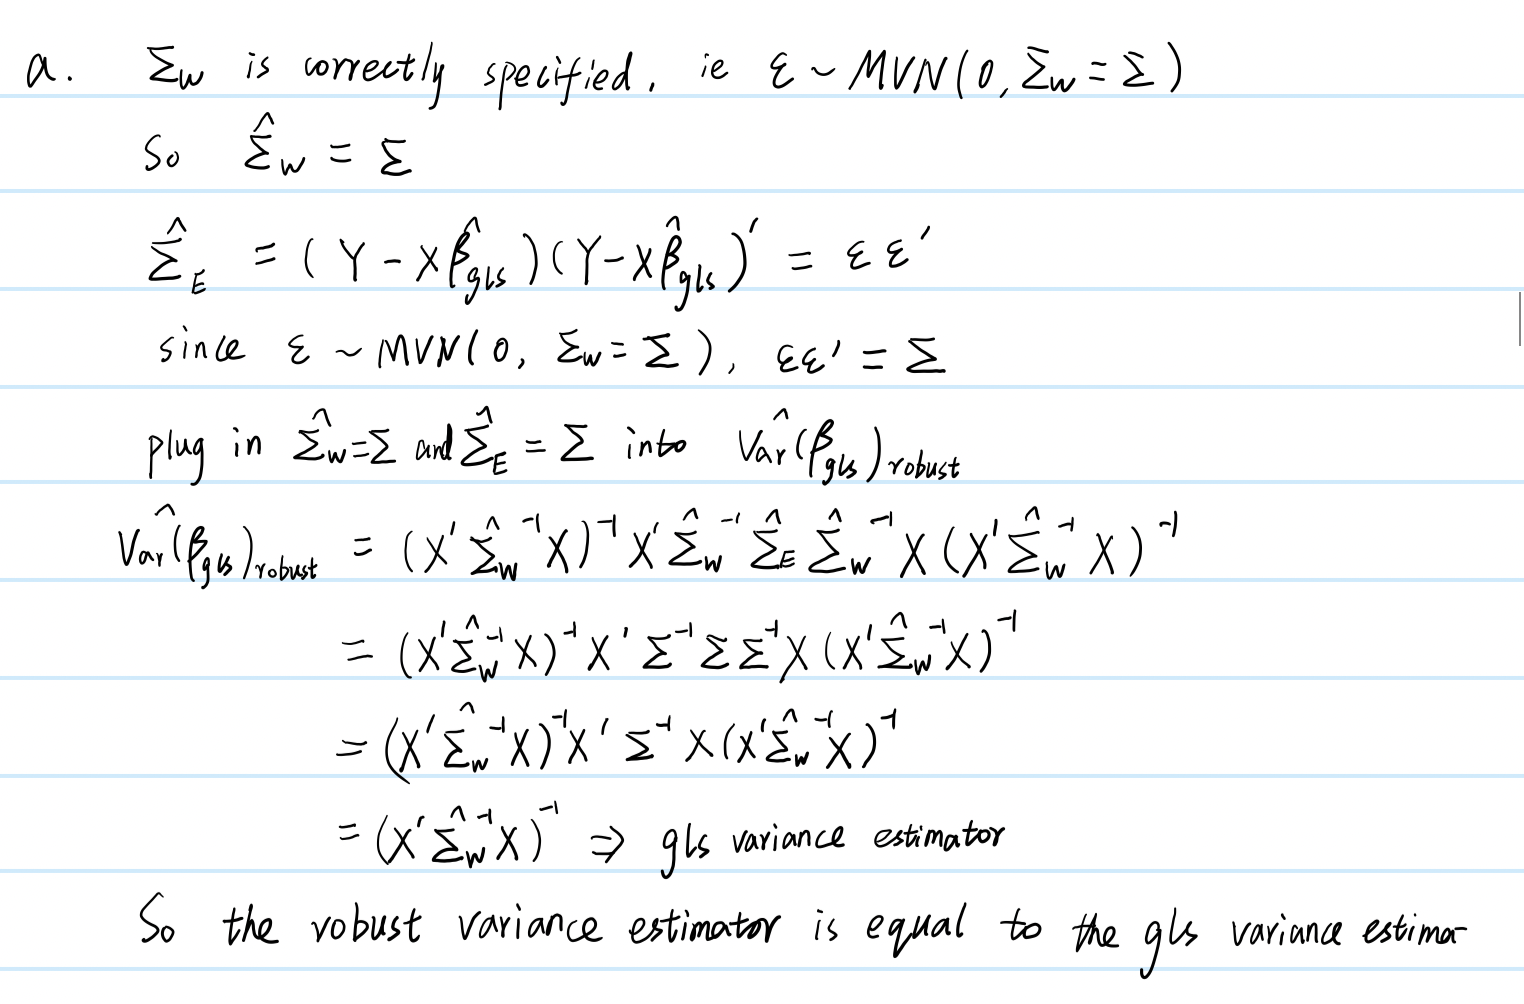 a. Σw is correctly specified, ie ε ~ MVN(0, Σw = Σ)
So Σ̂w = Σ
Σ̂E = (Y - Xβ̂gls)(Y - Xβ̂gls)' = εε'
since ε ~ MVN(0, Σw = Σ), εε' = Σ
plug in Σ̂w = Σ and Σ̂E = Σ into Var̂(βgls)robust
Var̂(βgls)robust = (X'Σ̂w⁻¹X)⁻¹X'Σ̂w⁻¹Σ̂EΣ̂w⁻¹X(X'Σ̂w⁻¹X)⁻¹
= (X'Σ̂w⁻¹X)⁻¹X'Σ⁻¹ΣΣ⁻¹X(X'Σ̂w⁻¹X)⁻¹
= (X'Σ̂w⁻¹X)⁻¹X'Σ⁻¹X(X'Σ̂w⁻¹X)⁻¹
= (X'Σ̂w⁻¹X)⁻¹ ⇒ gls variance estimator
So the robust variance estimator is equal to the gls variance estima-